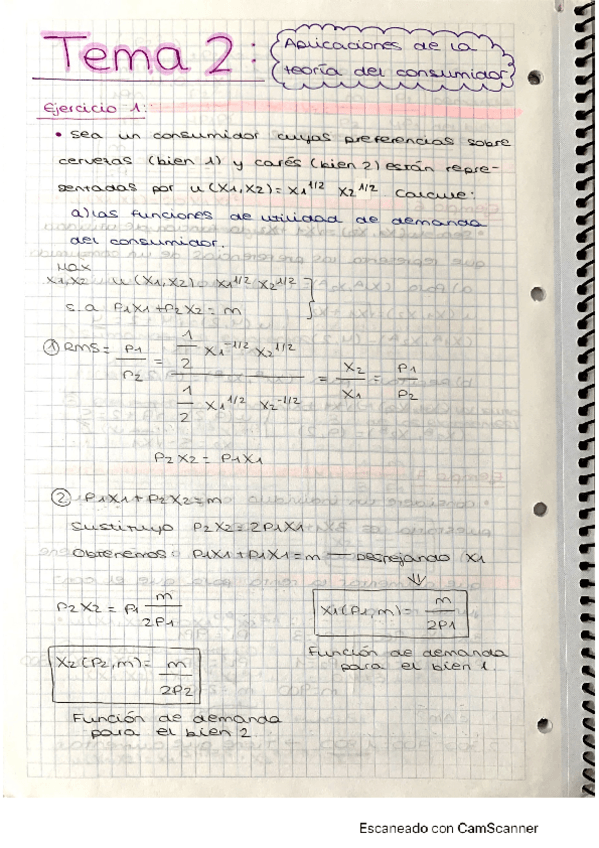 Tema 2:
Aplicaciones de la
teoría del consumidor
Ejercicio 1:
• sea un consumidor cuyas preferencias sobre
cervezas (bien 1) y cafés (bien 2) están repre-
sentadas por u(x1,x2) = x1^1/2 x2^1/2 calcule:
a) las funciones de utilidad de demanda
del consumidor.
max
x1,x2 u(x1,x2) = x1^1/2 x2^1/2
s.a P1x1+P2x2 = m
① RMS = P1/P2 = (1/2 x1^-1/2 x2^1/2)/(1/2 x1^1/2 x2^-1/2) = x2/x1 = P1/P2
P2x2 = P1x1
② P1x1+P2x2 = m
sustituyo P2x2 = 2P1x1
obtenemos: P1x1+P1x1 = m — Despejando x1
P2x2 = P1 m/2P1
x1(P1,m) = m/2P1
Función de demanda
para el bien 1.
x2(P2,m) = m/2P2
Función de demanda
para el bien 2.
Escaneado con CamScanner